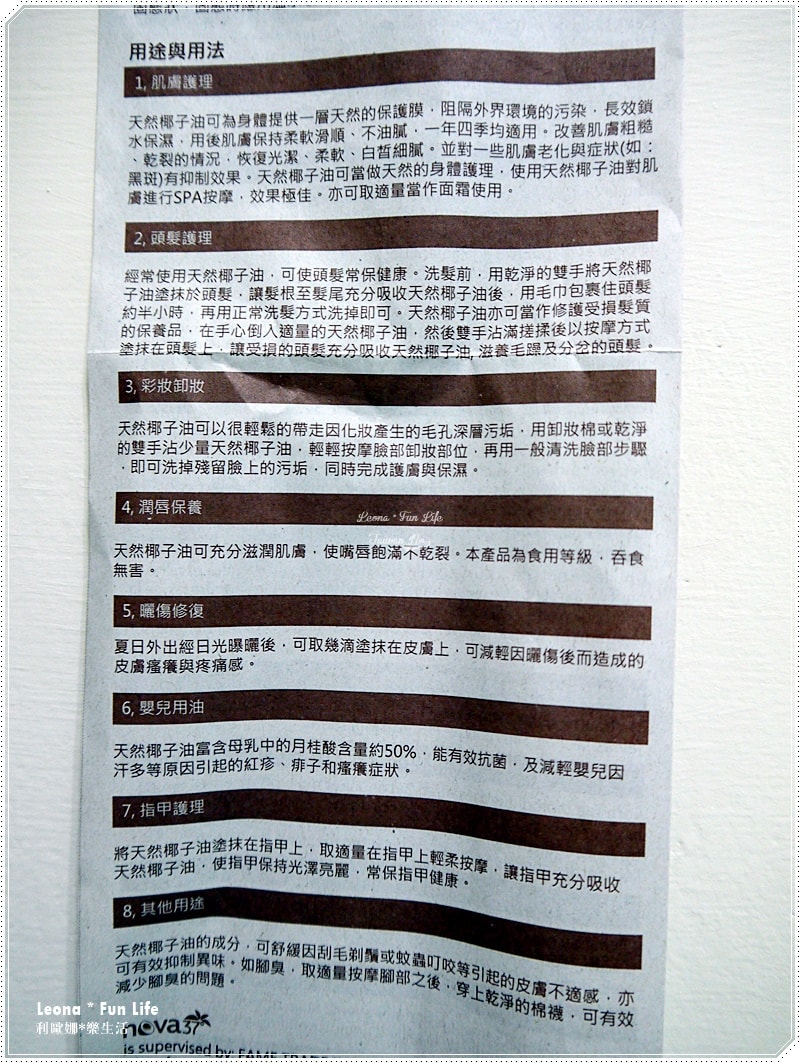 用途與用法
1, 肌膚護理
天然椰子油可為身體提供一層天然的保護膜，阻隔外界環境的污染，長效鎖
水保濕，用後肌膚保持柔軟滑順、不油膩，一年四季均適用。改善肌膚粗糙
、乾裂的情況，恢復光潔、柔軟、白皙細膩。並對一些肌膚老化與症狀(如：
黑斑)有抑制效果。天然椰子油可當做天然的身體護理，使用天然椰子油對肌
膚進行SPA按摩，效果極佳。亦可取適量當作面霜使用。
2, 頭髮護理
經常使用天然椰子油，可使頭髮常保健康。洗髮前，用乾淨的雙手將天然椰
子油塗抹於頭髮，讓髮根至髮尾充分吸收天然椰子油後，用毛巾包裹住頭髮
約半小時，再用正常洗髮方式洗掉即可。天然椰子油亦可當作修護受損髮質
的保養品，在手心倒入適量的天然椰子油，然後雙手沾滿搓揉後以按摩方式
塗抹在頭髮上，讓受損的頭髮充分吸收天然椰子油, 滋養毛躁及分岔的頭髮。
3, 彩妝卸妝
天然椰子油可以很輕鬆的帶走因化妝產生的毛孔深層污垢，用卸妝棉或乾淨
的雙手沾少量天然椰子油，輕輕按摩臉部卸妝部位，再用一般清洗臉部步驟
，即可洗掉殘留臉上的污垢，同時完成護膚與保濕。
4, 潤唇保養
Leona * Fun Life
天然椰子油可充分滋潤肌膚，使嘴唇飽滿不乾裂。本產品為食用等級，吞食
無害。
5, 曬傷修復
夏日外出經日光曝曬後，可取幾滴塗抹在皮膚上，可減輕因曬傷後而造成的
皮膚瘙癢與疼痛感。
6, 嬰兒用油
天然椰子油富含母乳中的月桂酸含量約50%，能有效抗菌，及減輕嬰兒因
汗多等原因引起的紅疹、痱子和瘙癢症狀。
7, 指甲護理
將天然椰子油塗抹在指甲上，取適量在指甲上輕柔按摩，讓指甲充分吸收
天然椰子油，使指甲保持光澤亮麗，常保指甲健康。
8, 其他用途
天然椰子油的成分，可舒緩因刮毛剃鬚或蚊蟲叮咬等引起的皮膚不適感，亦
可有效抑制異味。如腳臭，取適量按摩腳部之後，穿上乾淨的棉襪，可有效
減少腳臭的問題。
Leona * Fun Life
利歐娜*樂生活
nova37
is supervised by: FAME